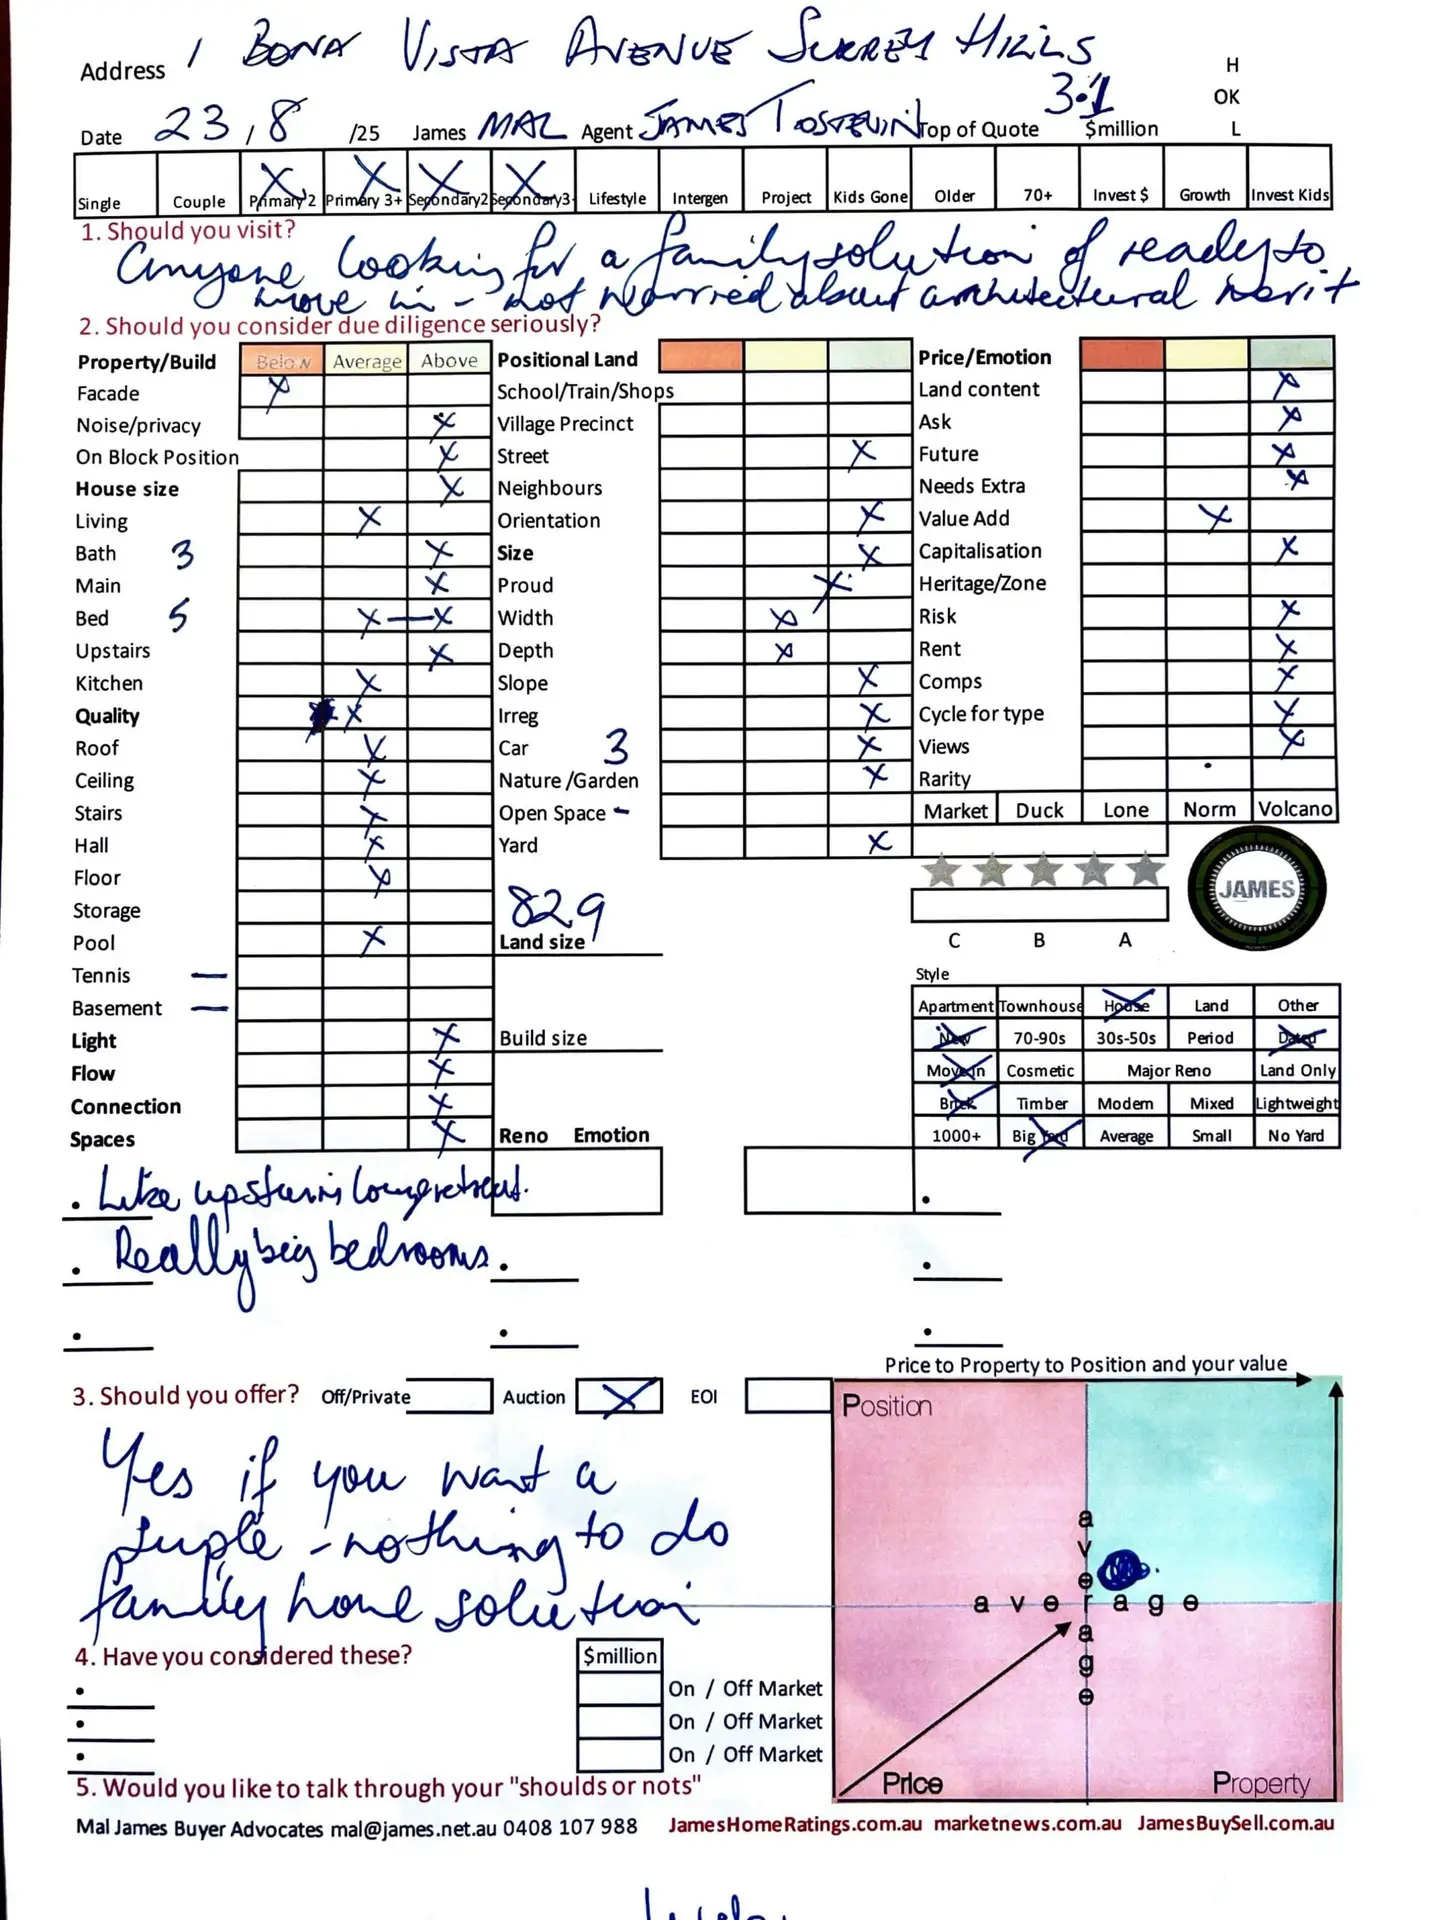 Address 1 BONA VISTA AVENUE SURREY HILLS
H
OK
L
Date 23 / 8 /25 James MAL Agent JAMES TOSTEVIN Top of Quote 3.1 $million
Single Couple Primary 2 Primary 3+ Secondary2 Secondary3+ Lifestyle Intergen Project Kids Gone Older 70+ Invest $ Growth Invest Kids
1. Should you visit?
Anyone looking for a family solution of ready to
move in - not worried about architectural merit
2. Should you consider due diligence seriously?
Property/Build Below Average Above Positional Land Price/Emotion
Facade X School/Train/Shops Land content X
Noise/privacy X Village Precinct Ask X
On Block Position X Street X Future X
House size X Neighbours Needs Extra X
Living X Orientation X Value Add X
Bath 3 X Size X Capitalisation X
Main X Proud X Heritage/Zone
Bed 5 X—X Width X Risk X
Upstairs X Depth X Rent X
Kitchen X Slope X Comps X
Quality X Irreg X Cycle for type X
Roof X Car 3 X Views X
Ceiling X Nature /Garden X Rarity
Stairs X Open Space - Market Duck Lone Norm Volcano
Hall X Yard X
Floor X
Storage 829 JAMES
Pool X Land size C B A
Tennis — Style
Apartment Townhouse House Land Other
Basement —
Light X Build size New 70-90s 30s-50s Period Dated
Flow X Move In Cosmetic Major Reno Land Only
Connection X Brick Timber Modern Mixed Lightweight
Spaces X Reno Emotion 1000+ Big Yard Average Small No Yard
• Like upstairs long retreat.
• Really big bedrooms
Price to Property to Position and your value
3. Should you offer? Off/Private Auction X EOI
Position
Yes if you want a
simple - nothing to do
family home solution
average
average
4. Have you considered these? $million
On / Off Market
On / Off Market
On / Off Market
Price Property
5. Would you like to talk through your "shoulds or nots"
Mal James Buyer Advocates mal@james.net.au 0408 107 988 JamesHomeRatings.com.au marketnews.com.au JamesBuySell.com.au